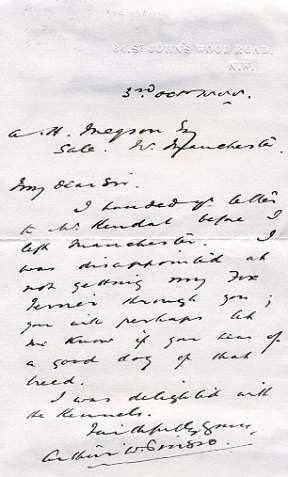 64, ST JOHN'S WOOD ROAD,
N.W.
3rd Oct
A. H. Megson Esq
Sale. Nr Manchester.
My dear Sir.
I handed yr letter
to Mr Kendal before I
left Manchester. I
was disappointed at
not getting my Fox
Terrier through you;
you will perhaps let
me know if you hear of
a good dog of that
breed.
I was delighted with
the Kennels.
Faithfully yours,
Arthur W.